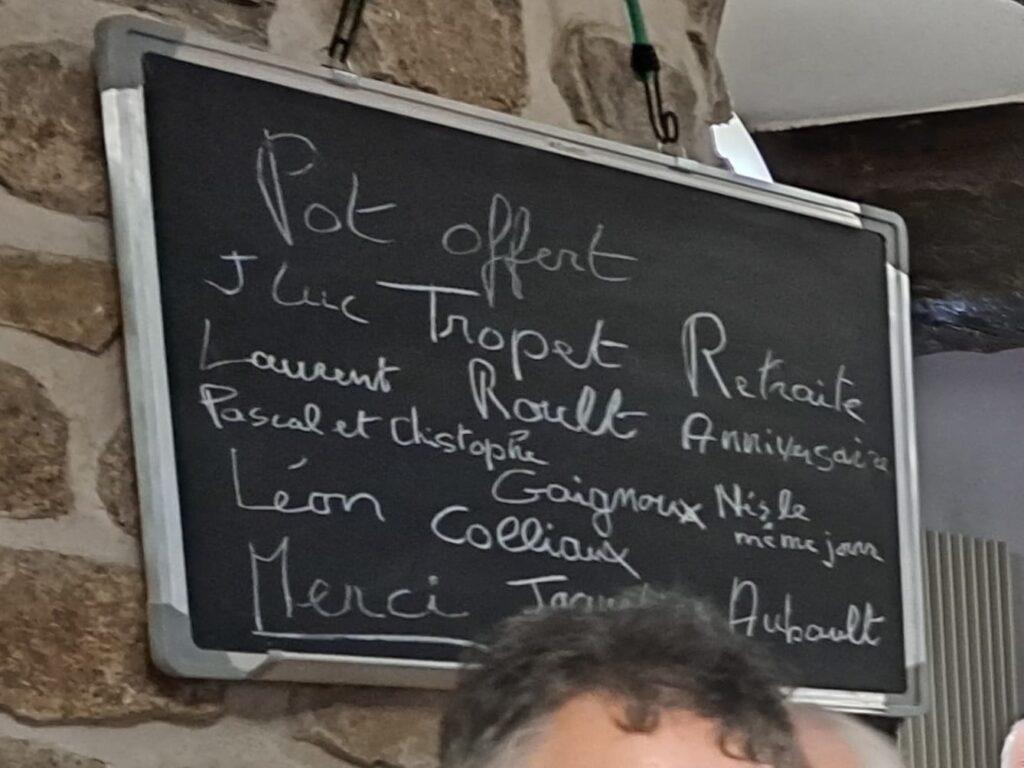 Pot offert
J Luc Tropet Retraite
Laurent Roult Anniversaire
Pascal et Christophe Gaignoux Nés le même jour
Léon Colliaux
Merci Aubault